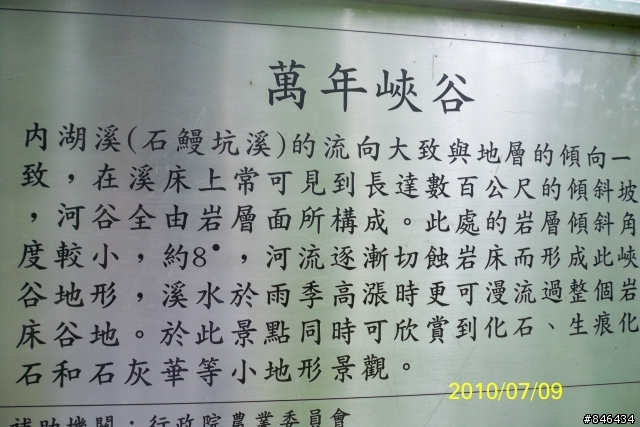 萬年峽谷
內湖溪(石鰻坑溪)的流向大致與地層的傾向一
致，在溪床上常可見到長達數百公尺的傾斜坡
，河谷全由岩層面所構成。此處的岩層傾斜角
度較小，約8°，河流逐漸切蝕岩床而形成此峽
谷地形，溪水於雨季高漲時更可漫流過整個岩
床谷地。於此景點同時可欣賞到化石、生痕化
石和石灰華等小地形景觀。
補助機關：行政院農業委員會
2010/07/09
#846434